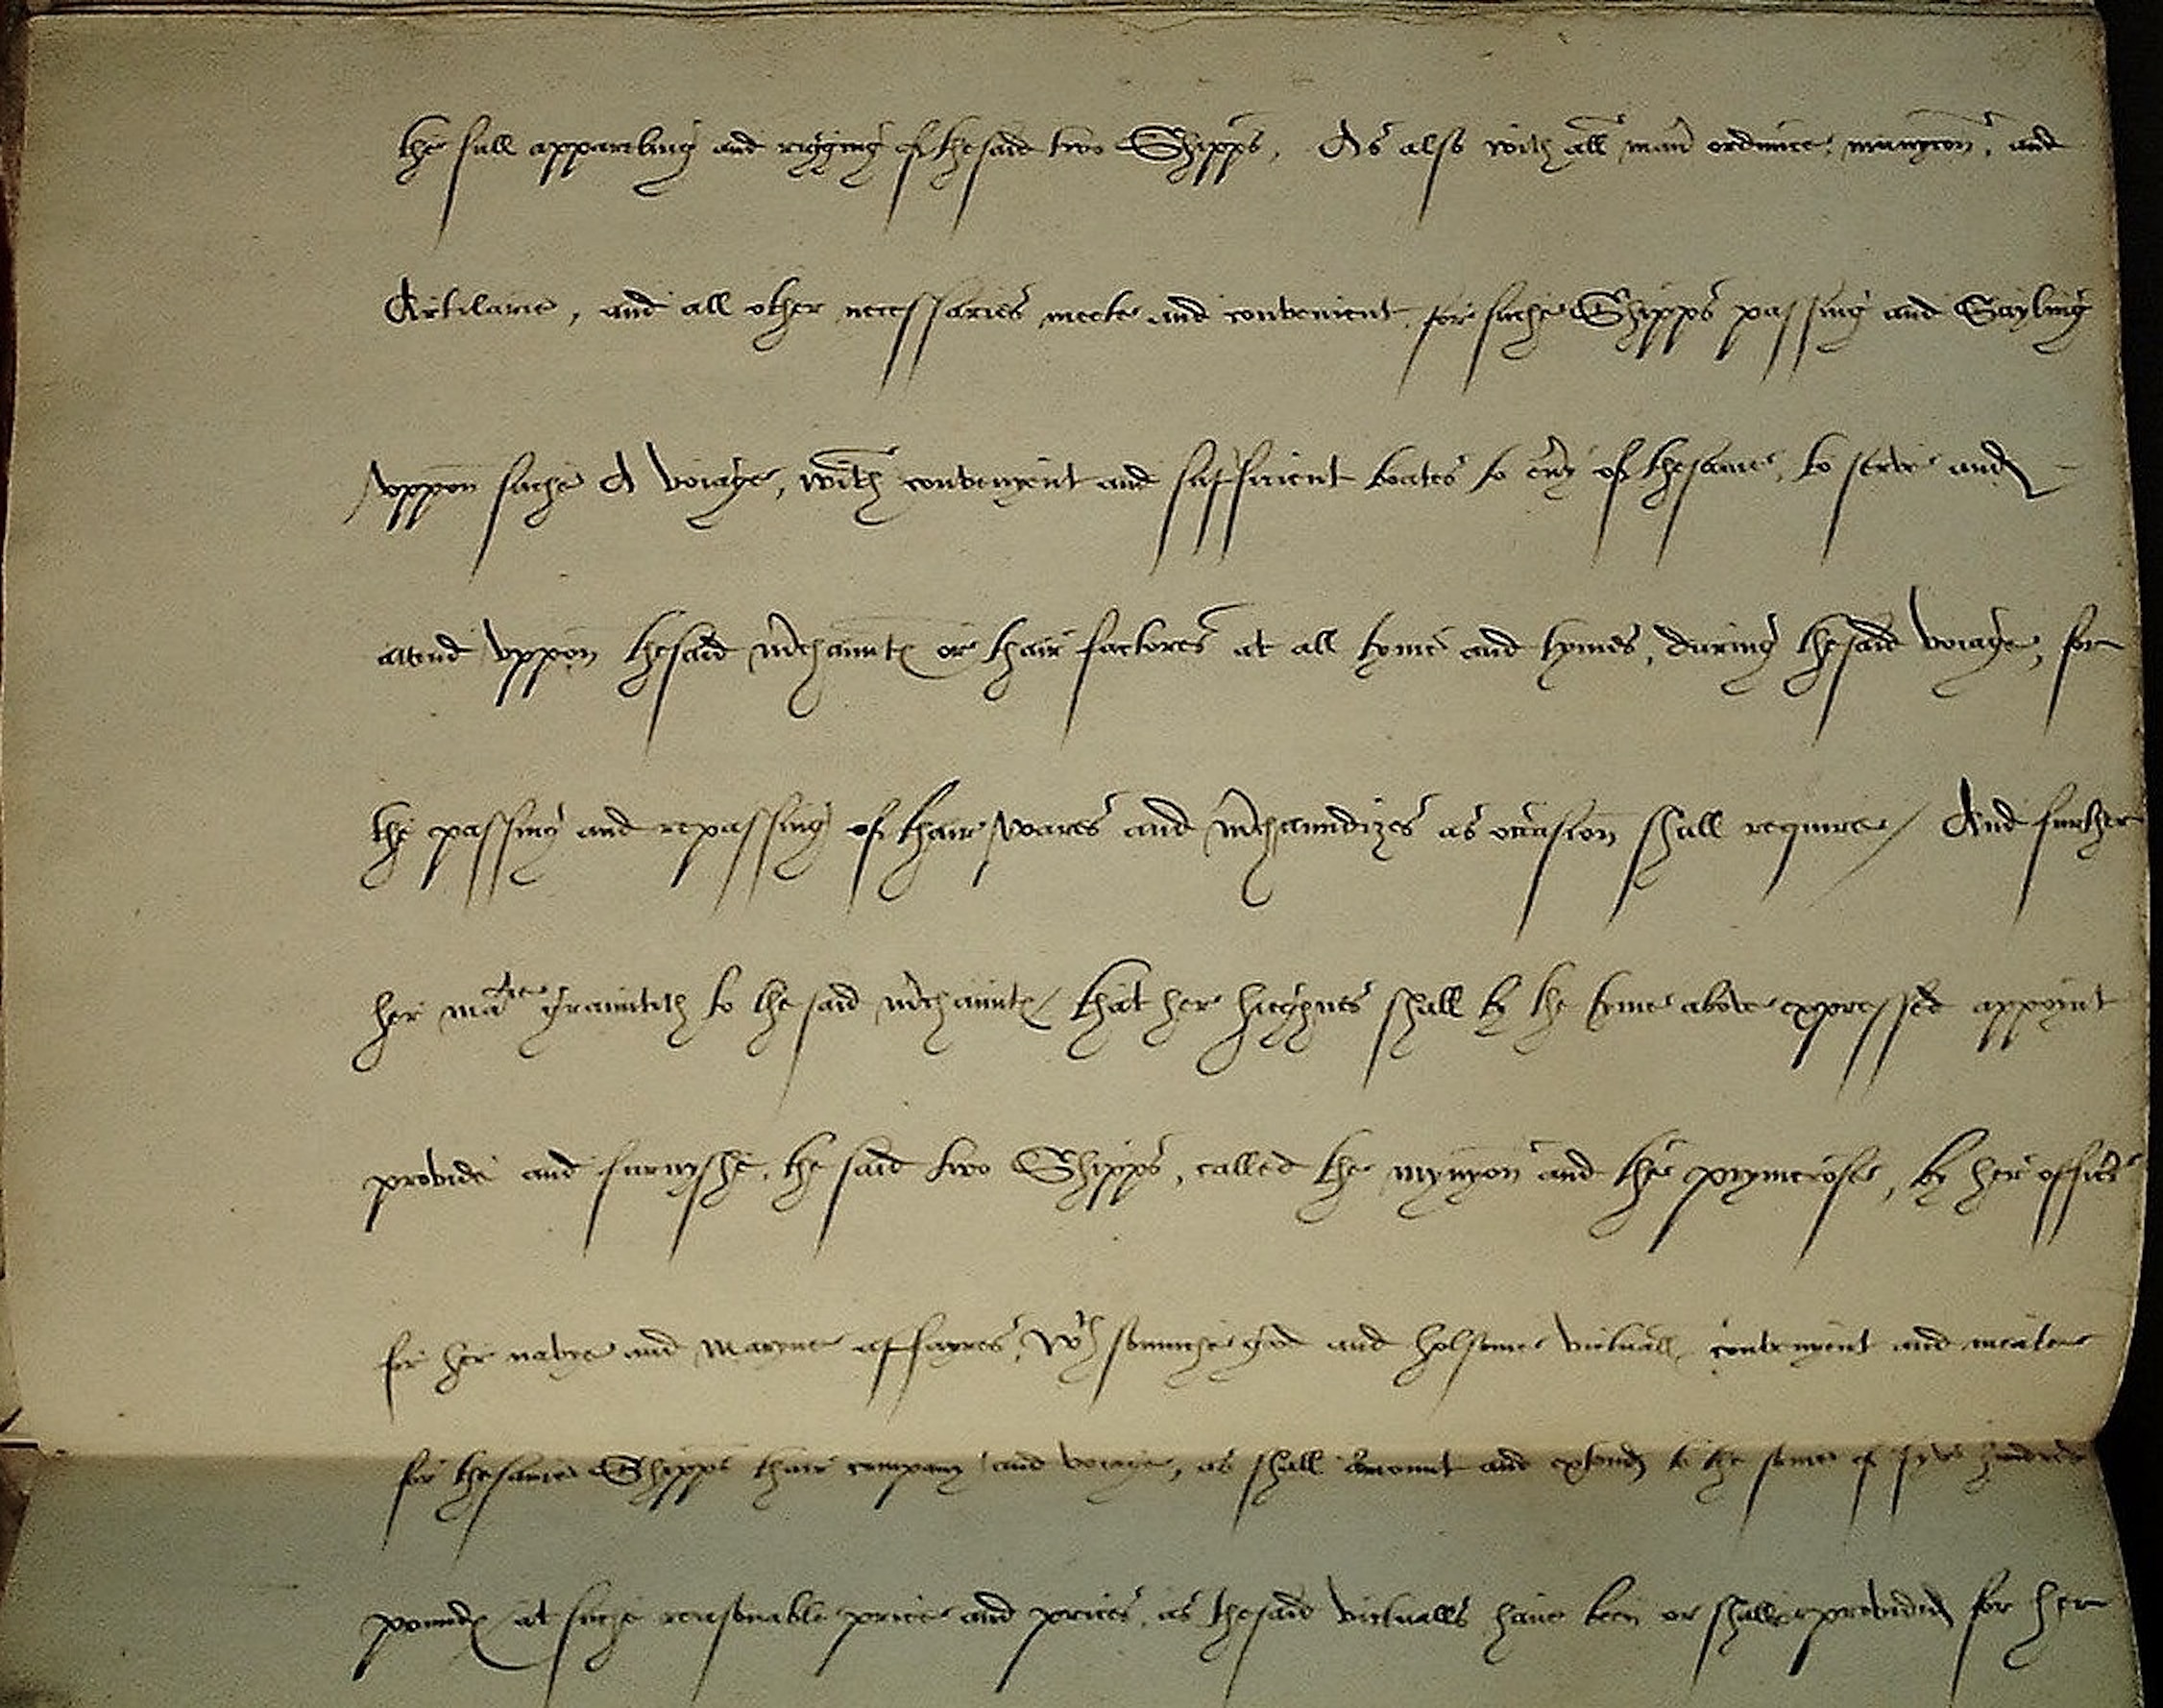 the full appareling and rigging of thesaid two Shipps, As also with all man ordñnce, munycon, and
Artilarie, and all other necessaries meete and convenient for suche Shipps passing and Sayling
vppon suche A voiage, with convenyent and sufficient boates to eũy of thesame, to serve and
attend vppon thesaid mchauntꝭ or thair factores at all tyme and tymes, during thesaid voiage, for
the passing and repassing of thair wares and mchaundizes as occasion shall require / And further
her matie grauntith to the said mchauntꝭ / that her hieghnes shall by the tyme above expressed appoint
provide and furnyshe, the said two Shipps, called the mynyon and the prymerose, by her officers
for her navye and maryne affayres, wth somuche good and holsome victuall, convenyent and meate
for thesame Shipps thair company and voiage, as shall amount and extend to the some of fyve hundreth
poundꝭ at suche reasonable price and prices, as thesaid victualls haue been or shalbe provided for her